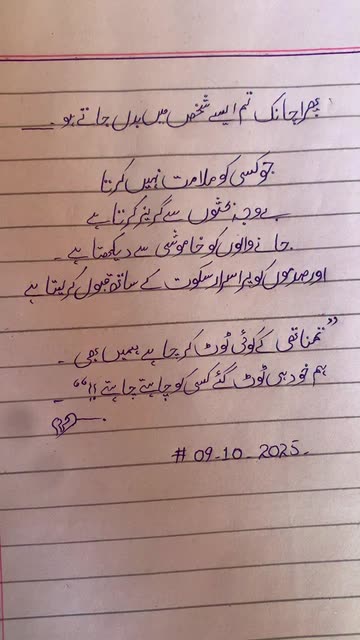 پھر اچانک تم ایسے شخص میں بدل جاتے ہو۔
جو کسی کو ملامت نہیں کرتا
بے وجہ بحثوں سے گریز کرتا ہے
جانے والوں کو خاموشی سے دیکھتا ہے۔
اور صدموں کو پراسرار سکوت کے ساتھ قبول کر لیتا ہے
”تمنا تھی کے کوئی ٹوٹ کر چاہے ہمیں بھی۔
ہم خود ہی ٹوٹ گئے کسی کو چاہتے چاہتے!!“۔
# 09-10-2025-